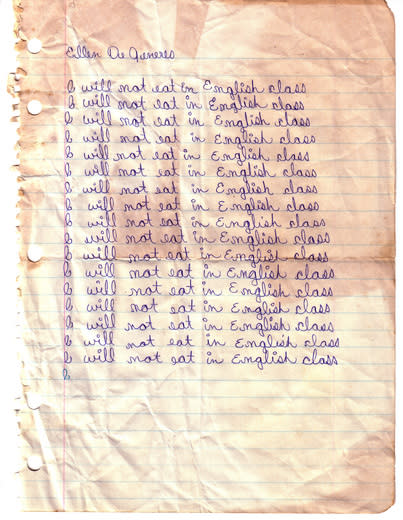 Ellen De Generes
I will not eat in English class
I will not eat in English class
I will not eat in English class
I will not eat in English class
I will not eat in English class
I will not eat in English class
I will not eat in English class
I will not eat in English class
I will not eat in English class
I will not eat in English class
I will not eat in English class
I will not eat in English class
I will not eat in English class
I will not eat in English class
I will not eat in English class
I will not eat in English class
I will not eat in English class
I